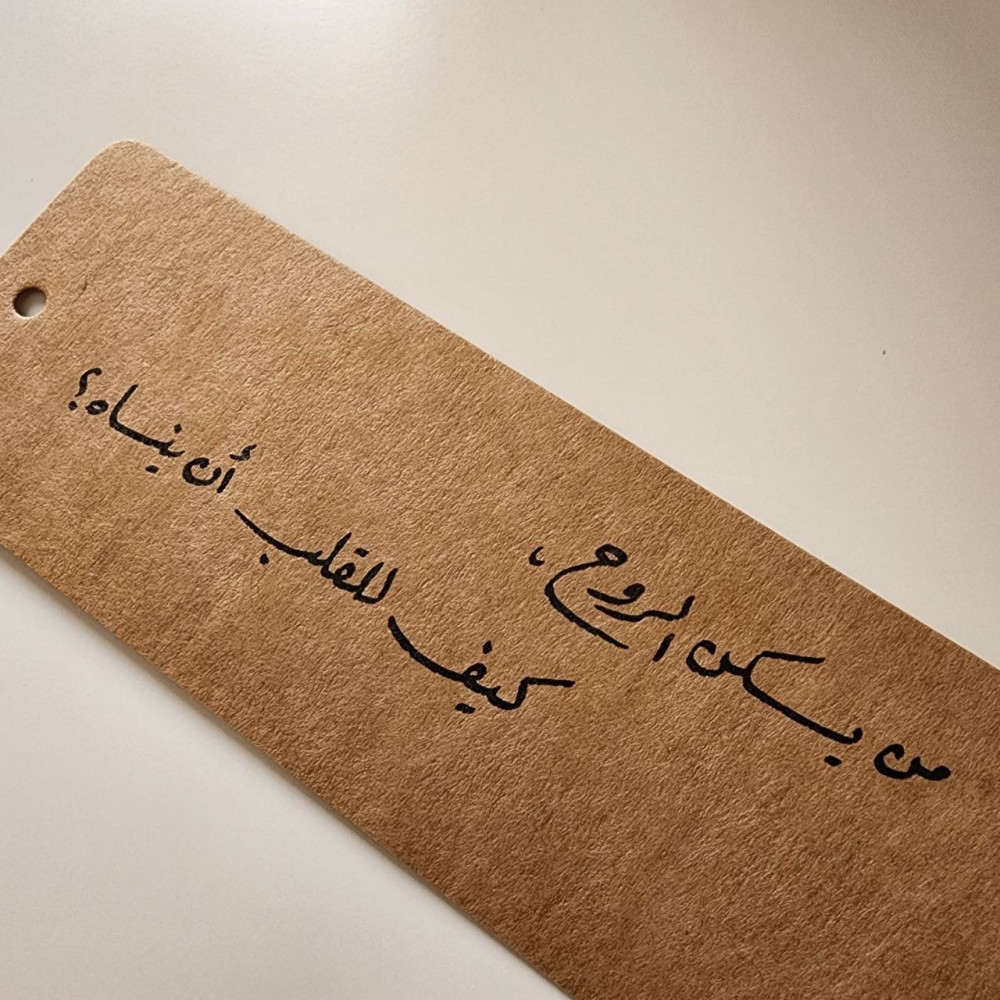 من يسكن الروح،
كيف للقلب أن ينساه؟